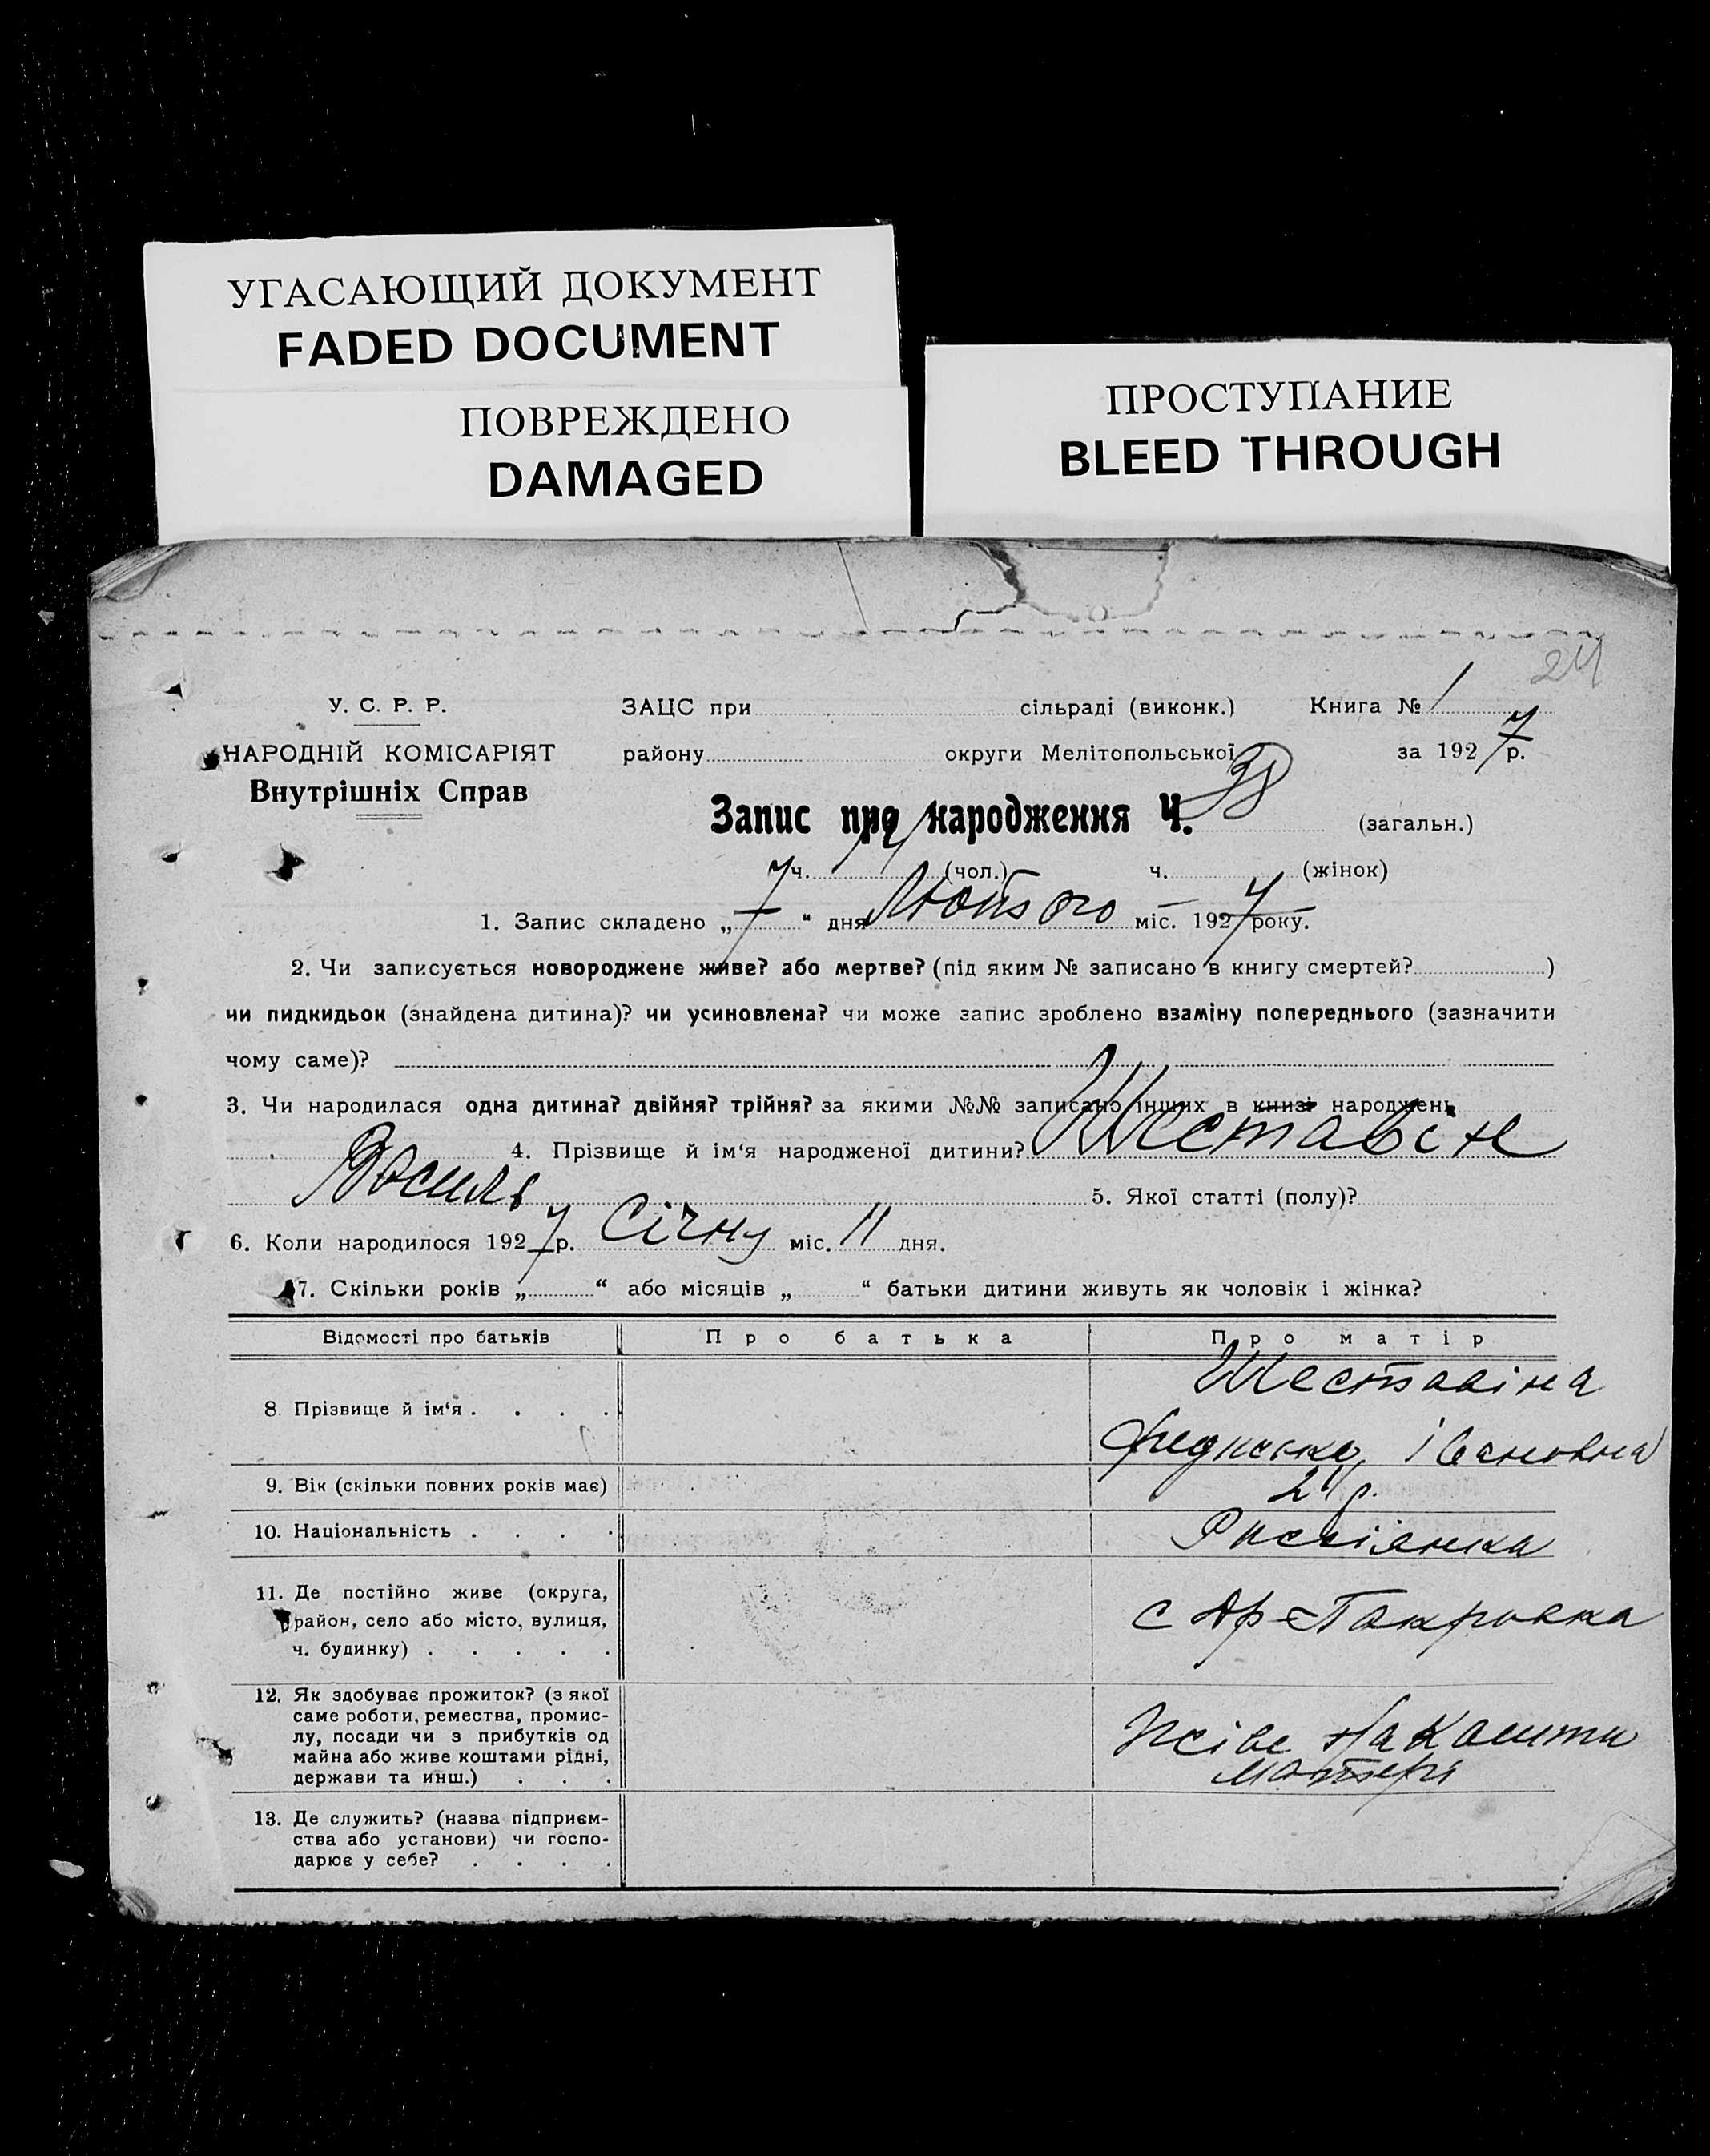 УГАСАЮЩИЙ ДОКУМЕНТ
FADED DOCUMENT
ПОВРЕЖДЕНО
DAMAGED
ПРОСТУПАНИЕ
BLEED THROUGH
24
У. С. Р. Р.
ЗАЦС при сільраді (виконк.) Книга № 1
НАРОДНІЙ КОМІСАРІЯТ
району округи Мелітопольської за 1927 р.
Внутрішніх Справ
Запис про народження Ч. 38 (загальн.)
ч. (чол.) ч. (жінок)
1. Запис складено „7“ дня Лютого міс. 1927 року.
2. Чи записується новороджене живе? або мертве? (під яким № записано в книгу смертей? )
чи пидкидьок (знайдена дитина)? чи усиновлена? чи може запис зроблено взаміну попереднього (зазначити
чому саме)?
3. Чи народилася одна дитина? двійня? трійня? за якими №№ записано інших в книзі народжень
4. Прізвище й ім'я народженої дитини? Шеставін
Василь 5. Якої статті (полу)?
6. Коли народилося 1927 р. Січну міс. 11 дня.
7. Скільки років „ “ або місяців „ “ батьки дитини живуть як чоловік і жінка?
Відомості про батьків Про батька Про матір
8. Прізвище й ім'я . . . . Шеставіна
Івановна
9. Вік (скільки повних років має) 24 р.
10. Національність . . . . Рисіянка
11. Де постійно живе (округа,
район, село або місто, вулиця,
ч. будинку) . . . . .
12. Як здобуває прожиток? (з якої
саме роботи, ремества, промис-
лу, посади чи з прибутків од
майна або живе коштами рідні,
держави та инш.) . . .
Жіве на Кошти
матери
13. Де служить? (назва підприєм-
ства або установи) чи госпо-
дарює у себе? . . . .